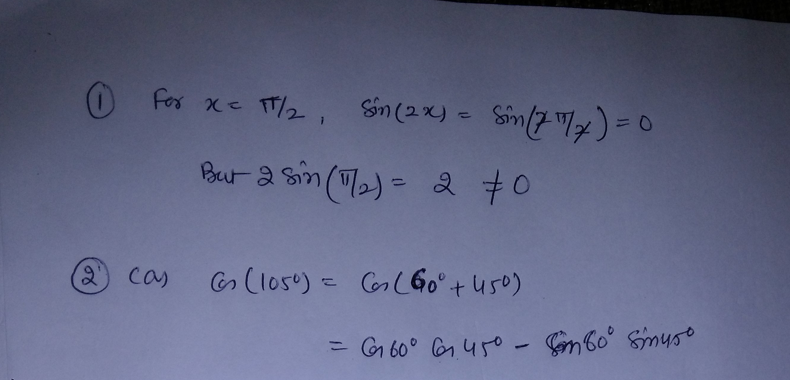 ① For x = π/2, Sin(2x) = Sin(2π/2) = 0
But 2 Sin(π/2) = 2 ≠ 0
② (a) Cos(105°) = Cos(60° + 45°)
= Cos 60° Cos 45° - Sin 60° Sin 45°